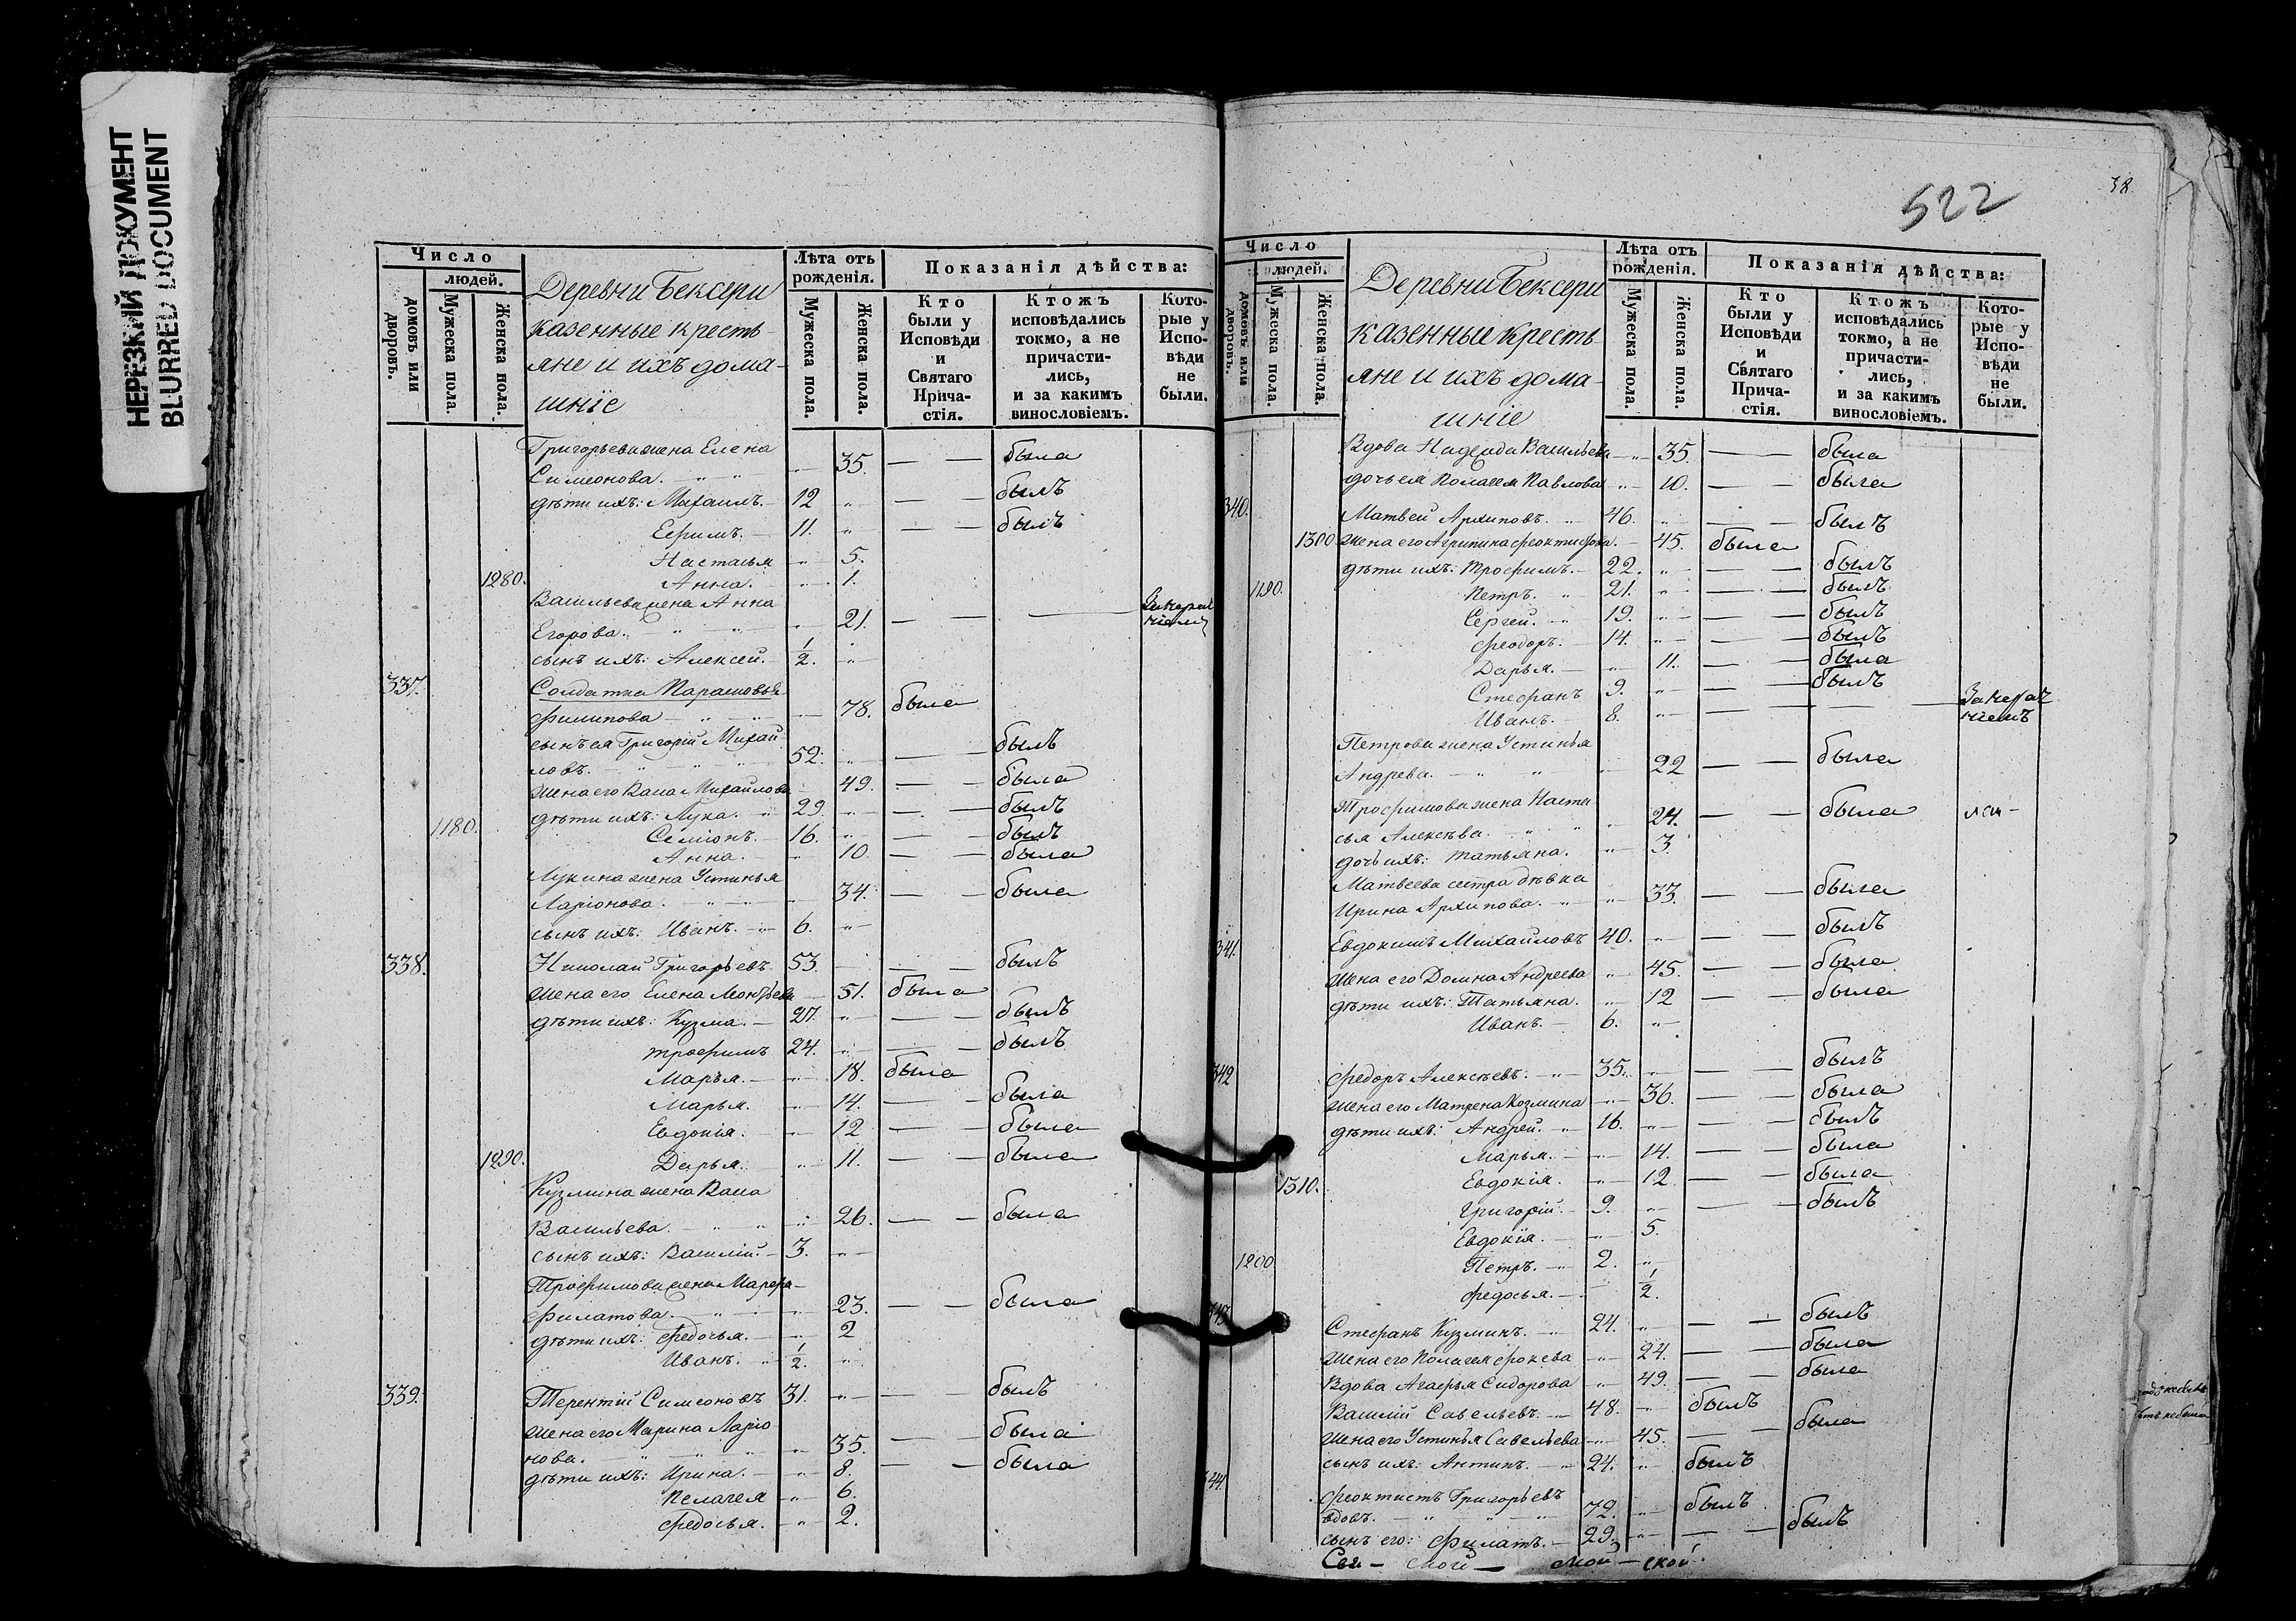 НЕРЕЗКИЙ ДОКУМЕНТ
BLURRED DOCUMENT
Число
людей.
домовъ или дворовъ.
Мужеска пола.
Женска пола.
Деревни Бексери
казенные кресть-
яне и ихъ дома-
шніе
Лѣта отъ рожденія.
Мужеска пола.
Женска пола.
Показанія дѣйства:
Кто были у Исповѣди и Святаго Прича-стія.
Ктожъ исповѣдались токмо, а не причасти-лись, и за какимъ винословіемъ.
Кото-рые у Испо-вѣди не были.
Григорьева жена Елена
Симеонова. 35. была
дѣти ихъ: Михаилъ. 12 былъ
Ефримъ. 11. былъ
Настасья 5.
1280. Анна. 1.
Васильева жена Анна
Егорова. 21.
сынъ ихъ: Алексей. 1/2.
337. Солдатка Парасковья
Филипова 78. была
сынъ ея Григорій Михай-
ловъ. 52. былъ
жена его Васа Михайлова 49. была
дѣти ихъ: Лука. 29. былъ
1180. Семіонъ. 16. былъ
Анна. 10. была
Лукина жена Устинья
Ларіонова. 34. была
сынъ ихъ: Иванъ. 6.
338. Николай Григорьевъ 53. былъ
жена его Елена Леонтьева 51. была
дѣти ихъ: Кузма. 27. былъ
Трофимъ 24. былъ
Марья. 18. была
Марья. 14. была
Евдокія. 12 была
1290. Дарья. 11. была
Кузмина жена Васа
Васильева. 26. была
сынъ ихъ: Василій. 3.
Трофимова жена Марфа
Филатова. 23. была
дѣти ихъ: Федосья. 2
Иванъ. 1/2.
339. Терентій Симеоновъ 31. былъ
жена его Марина Ларіо
нова. 35. была
дѣти ихъ: Ирина. 8. была
Пелагея 6.
Федосья. 2.
522
38.
Число
людей.
домовъ или дворовъ.
Мужеска пола.
Женска пола.
Деревни Бексери
казенные кресть-
яне и ихъ дома-
шніе
Лѣта отъ рожденія.
Мужеска пола.
Женска пола.
Показанія дѣйства:
Кто были у Исповѣди и Святаго Прича-стія.
Ктожъ исповѣдались токмо, а не причасти-лись, и за какимъ винословіемъ.
Кото-рые у Испо-вѣди не были.
Вдова Надежда Васильева 35. была
дочь ея Полагея Павлова 10. была
340. Матвей Архиповъ. 46. былъ
1300 жена его Агрипина Феоктисова. 45. была
дѣти ихъ: Трофимъ. 22. былъ
1190. Петръ. 21. былъ
Сергей. 19. былъ
Феодоръ. 14. былъ
Дарья. 11. была
Стефанъ 9. былъ
Иванъ. 8.
Петрова жена Устинья
Андрева. 22 была
Трофимова жена Наста
сья Алексѣва. 24. была
дочь ихъ: Татьяна. 3.
Матвеева сестра дѣвка
Ирина Архипова. 33. была
341. Евдокимъ Михайловъ 40. былъ
жена его Домна Андреева 45. была
дѣти ихъ: Татьяна. 12 была
Иванъ. 6.
342 Федоръ Алексѣевъ. 35. былъ
жена его Матрена Козмина 36. была
дѣти ихъ: Андрей. 16. былъ
Марья. 14. была
1310. Евдокія. 12 была
Григорій. 9. былъ
Евдокія. 5.
1200 Петръ. 2.
Федосья. 1/2.
343. Стефанъ Кузминъ. 24. былъ
жена его Полагея Фокева 24. была
Вдова Агафья Сидорова 49. была
Василій Савельевъ. 48. былъ
жена его Устинья Савельева 45. была
сынъ ихъ: Антипъ. 24. былъ
344. Феоктистъ Григорьевъ
вдовъ. 72. былъ
сынъ его: Филатъ. 29. былъ